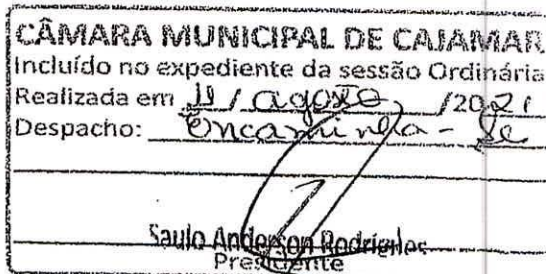 CÂMARA MUNICIPAL DE CAJAMAR
Incluído no expediente da sessão Ordinária
Realizada em 11 / agosto /2021
Despacho: Encaminha - se
Saulo Anderson Rodrigues
Presidente